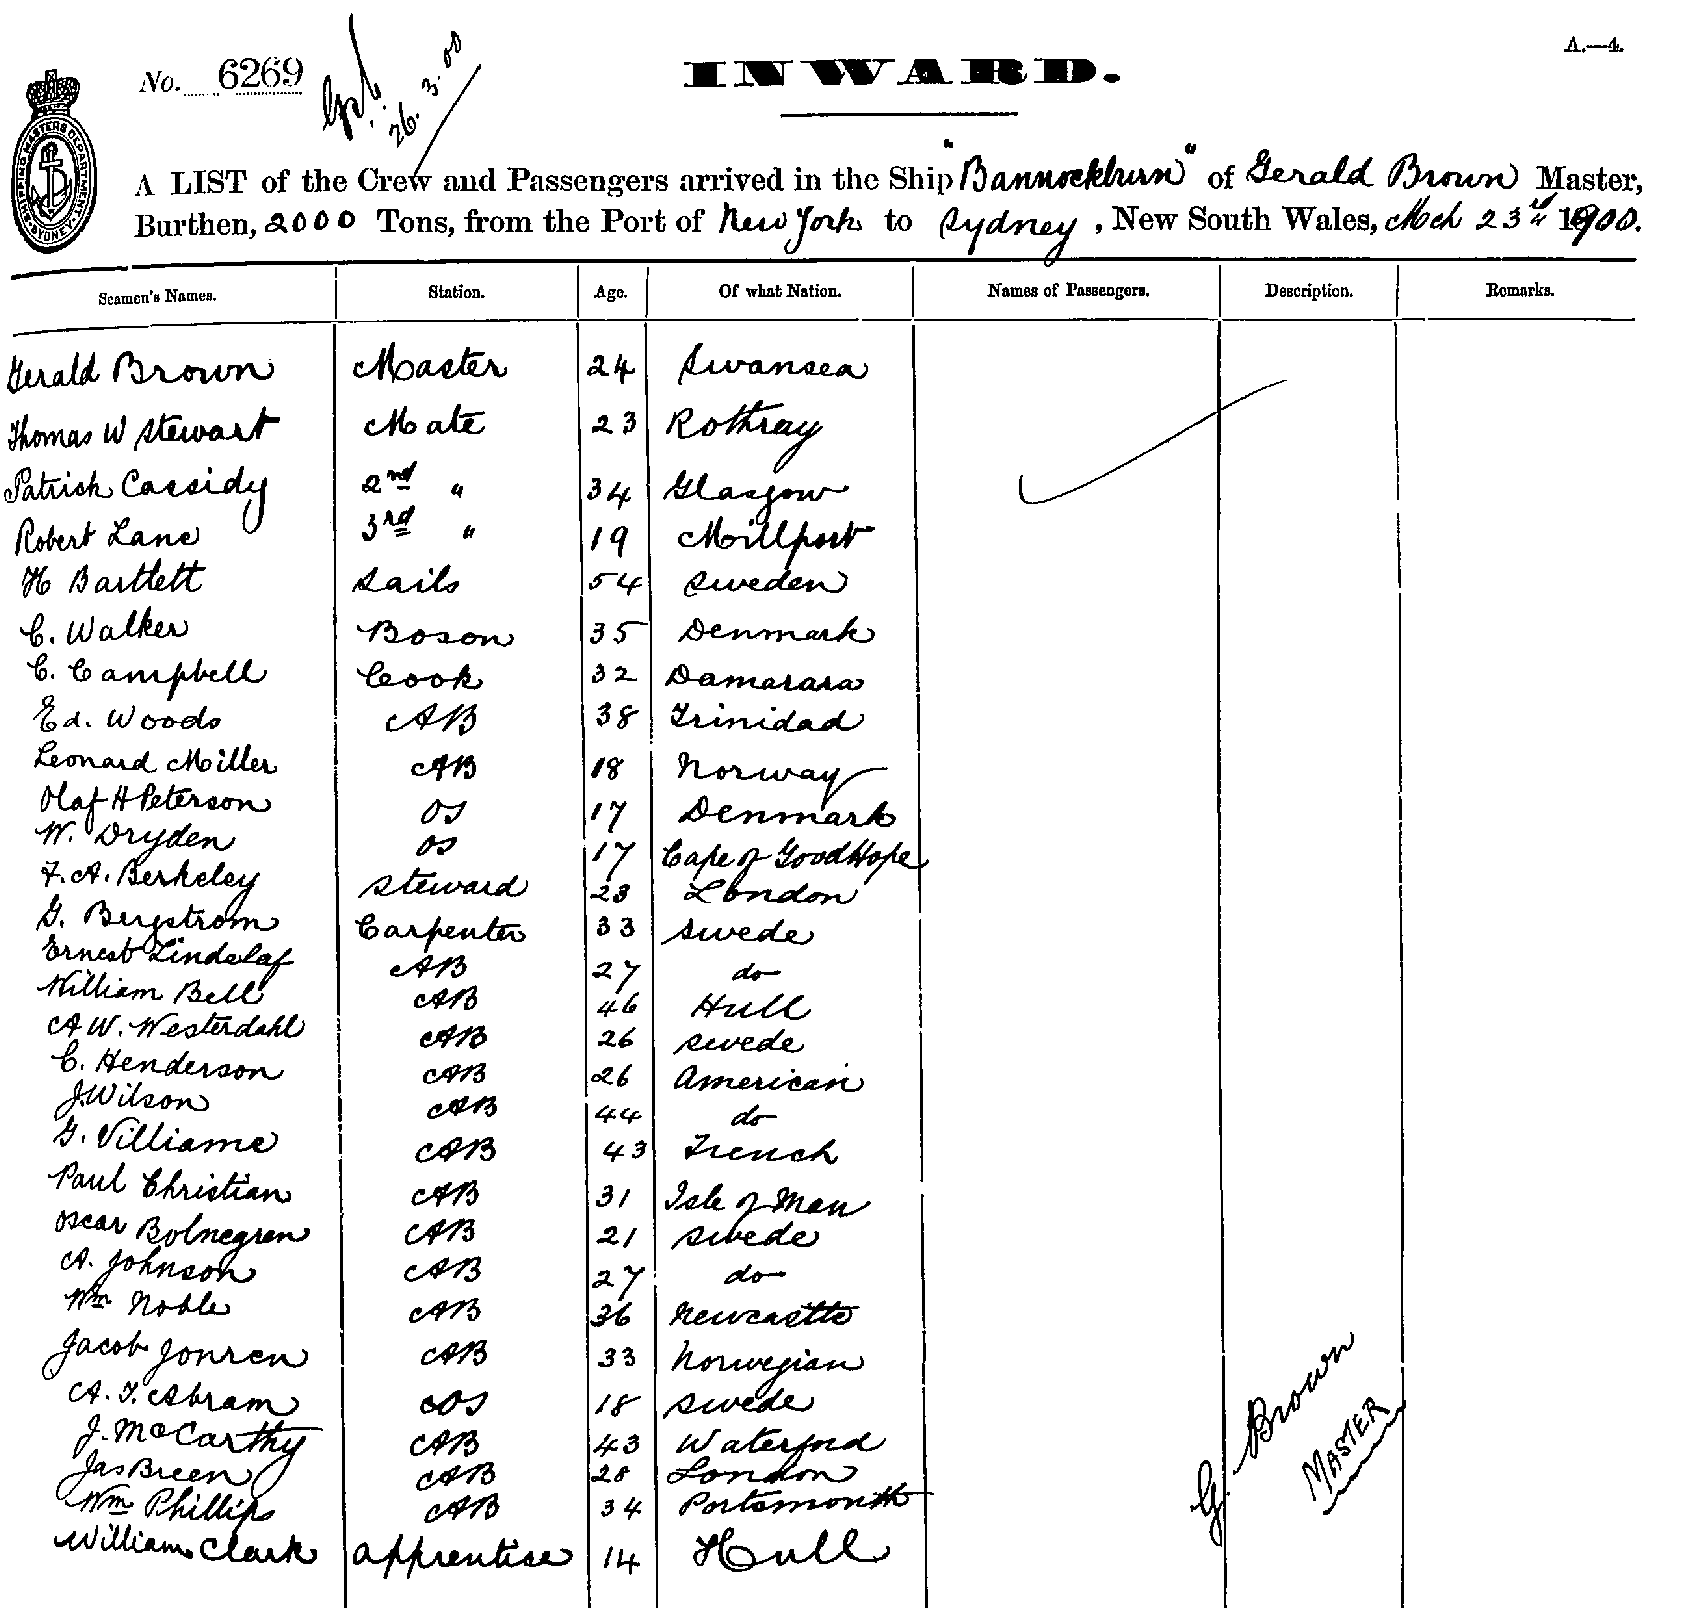 A.—4.
No. 6269
26.3.00
INWARD.
SHIPPING MASTERS DEPARTMENT SYDNEY
A LIST of the Crew and Passengers arrived in the Ship "Bannockburn" of Gerald Brown Master,
Burthen, 2000 Tons, from the Port of New York to Sydney, New South Wales, Mch 23rd 1900.
Seamen's Names. Station. Age. Of what Nation. Names of Passengers. Description. Remarks.
Gerald Brown Master 24 Swansea
Thomas W Stewart Mate 23 Rothsay
Patrick Cassidy 2nd " 34 Glasgow
Robert Lane 3rd " 19 Millport
H Bartlett Sails 54 Sweden
C. Walker Boson 35 Denmark
C. Campbell Cook 32 Damarara
Ed. Woods AB 38 Trinidad
Leonard Miller AB 18 Norway
Olaf H Peterson OS 17 Denmark
W. Dryden OS 17 Cape of Good Hope
F. A. Berkeley Steward 23 London
G. Bergstrom Carpenter 33 Swede
Ernest Lindelaf AB 27 do
William Bell AB 46 Hull
A W. Westerdahl AB 26 Swede
C. Henderson AB 26 American
J. Wilson AB 44 do
G. Villiame AB 43 French
Paul Christian AB 31 Isle of Man
Oscar Bolnegren AB 21 Swede
A. Johnson AB 27 do
Wm Noble AB 36 Newcastle
Jacob Jonren AB 33 Norwegian
A. F. Abram OS 18 Swede
J. McCarthy AB 43 Waterford
Jas Breen AB 28 London
Wm Phillips AB 34 Portsmouth
William Clark apprentise 14 Hull
G. Brown
MASTER